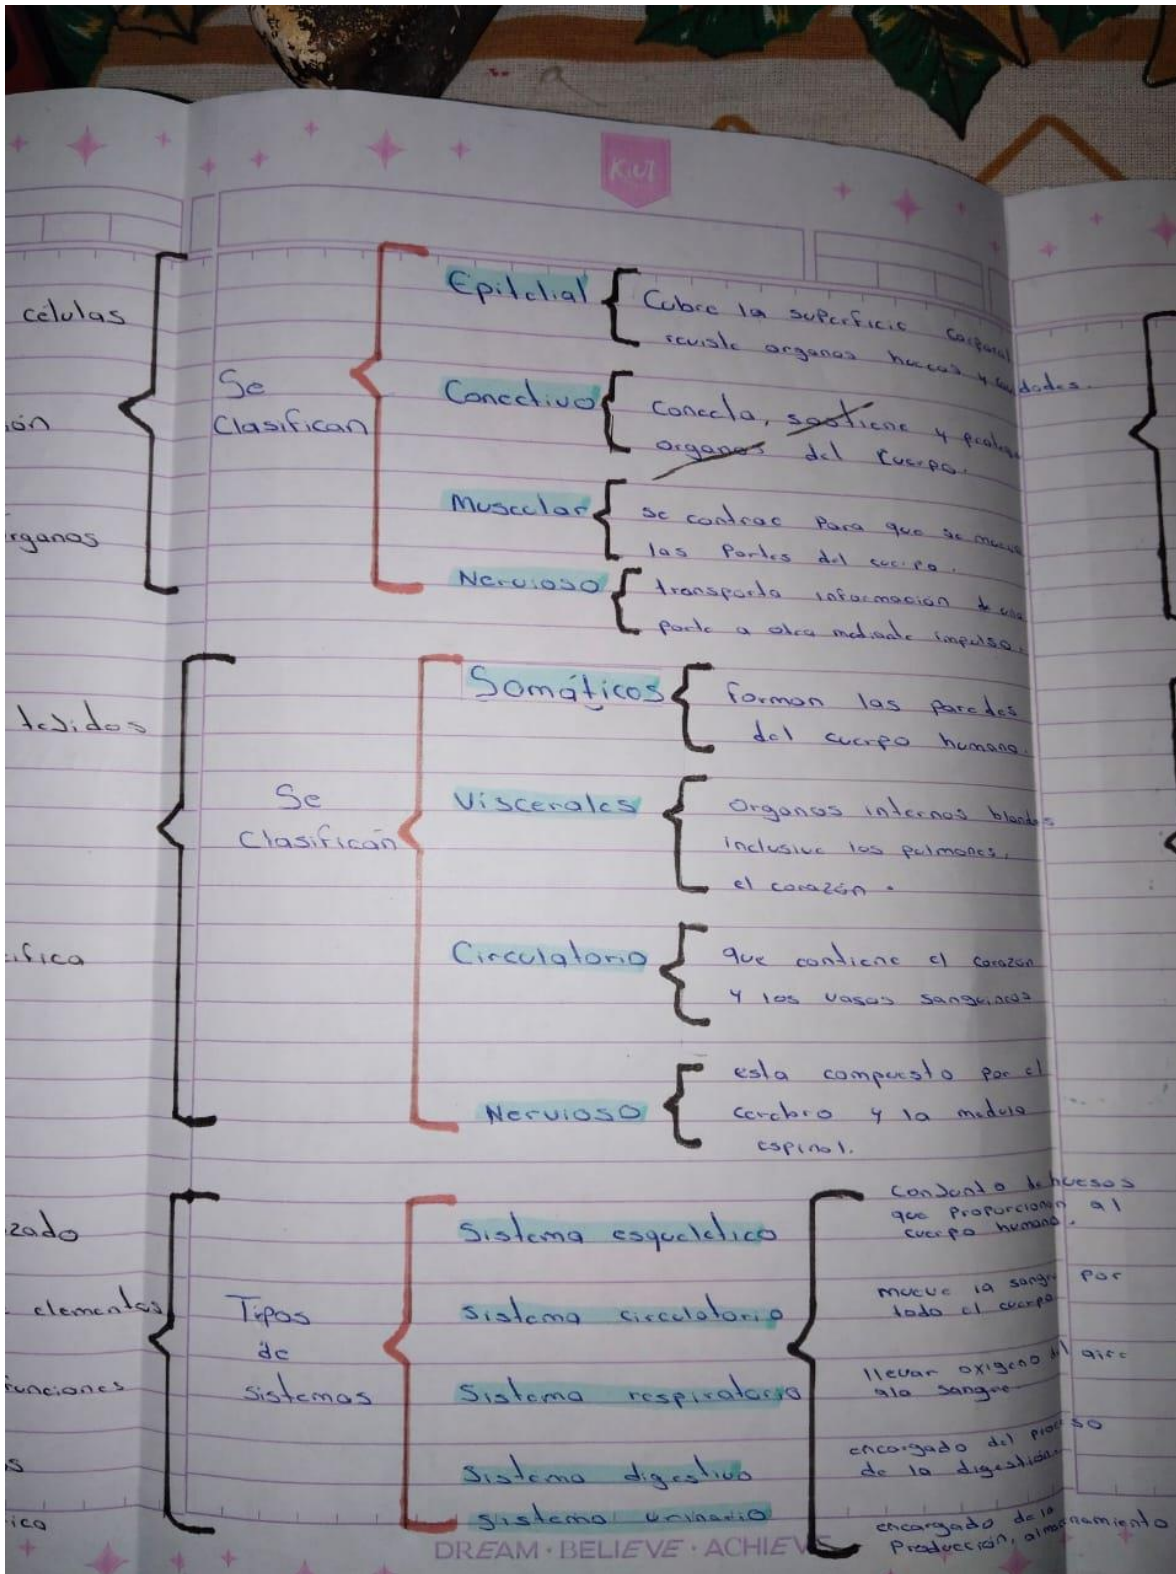 KiUT
células
ión
rganos
Se
Clasifican
Epitelial
Cubre la superficie corporal
reviste organos huecos y
dades.
Conectivo
conecta, sostiene y
organos del cuerpo.
Muscular
se contrae para que se
las Partes del cuerpo.
Nervioso
transporta información de una
parte a otra mediante impulso.
tejidos
ifica
Se
Clasifican
Somáticos
forman las paredes
del cuerpo humano.
Viscerales
Organos internos blandos
inclusive los pulmones,
el corazón.
Circulatorio
que contiene el corazón
y los vasos sanguineos
Nervioso
esta compuesto por el
cerebro y la medula
espinal.
zado
elementos
funciones
s
ica
Tipos
de
sistemas
Sistema esqueletico
conjunto de huesos
que proporcionan al
cuerpo humano.
Sistema circulatorio
mueve la sangre por
todo el cuerpo
Sistema respiratorio
llevar oxigeno del aire
ala sangre
Sistema digestivo
encargado del proceso
de la digestión.
Sistema urinario
encargado de la
Producción, almacenamiento
DREAM · BELIEVE · ACHIEVE